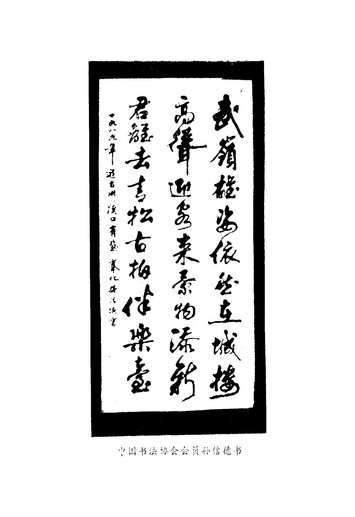 武嶺雄姿依然在城樓
高聳迎客来景物添新
君離去青松古柏伴樂臺
一九八九年 遊 溪口有感 奉化孫信德書
中国书法协会会员孙信德书